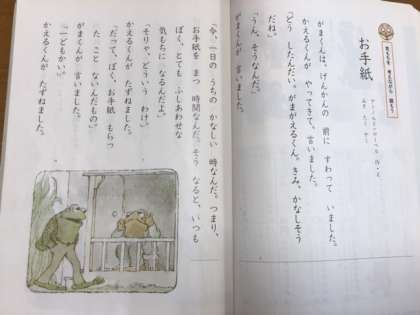 気もちを 考えながら 読もう
お手紙
アーノルド=ローベル 作・え
みき たく やく
がまくんは、げんかんの 前に すわって いました。
かえるくんが やって きて、言いました。
「どう したんだい、がまがえるくん。きみ、かなしそう
だね。」
「うん、そうなんだ。」
がまくんが 言いました。
「今、一日の うちの かなしい 時なんだ。つまり、
お手紙を まつ 時間なんだ。そう なると、いつも
ぼく、とても ふしあわせな
気もちに なるんだよ。」
「そりゃ、どういう わけ。」
かえるくんが たずねました。
「だって、ぼく、お手紙 もらっ
た こと ないんだもの。」
がまくんが 言いました。
「一どもかい。」
かえるくんが たずねました。